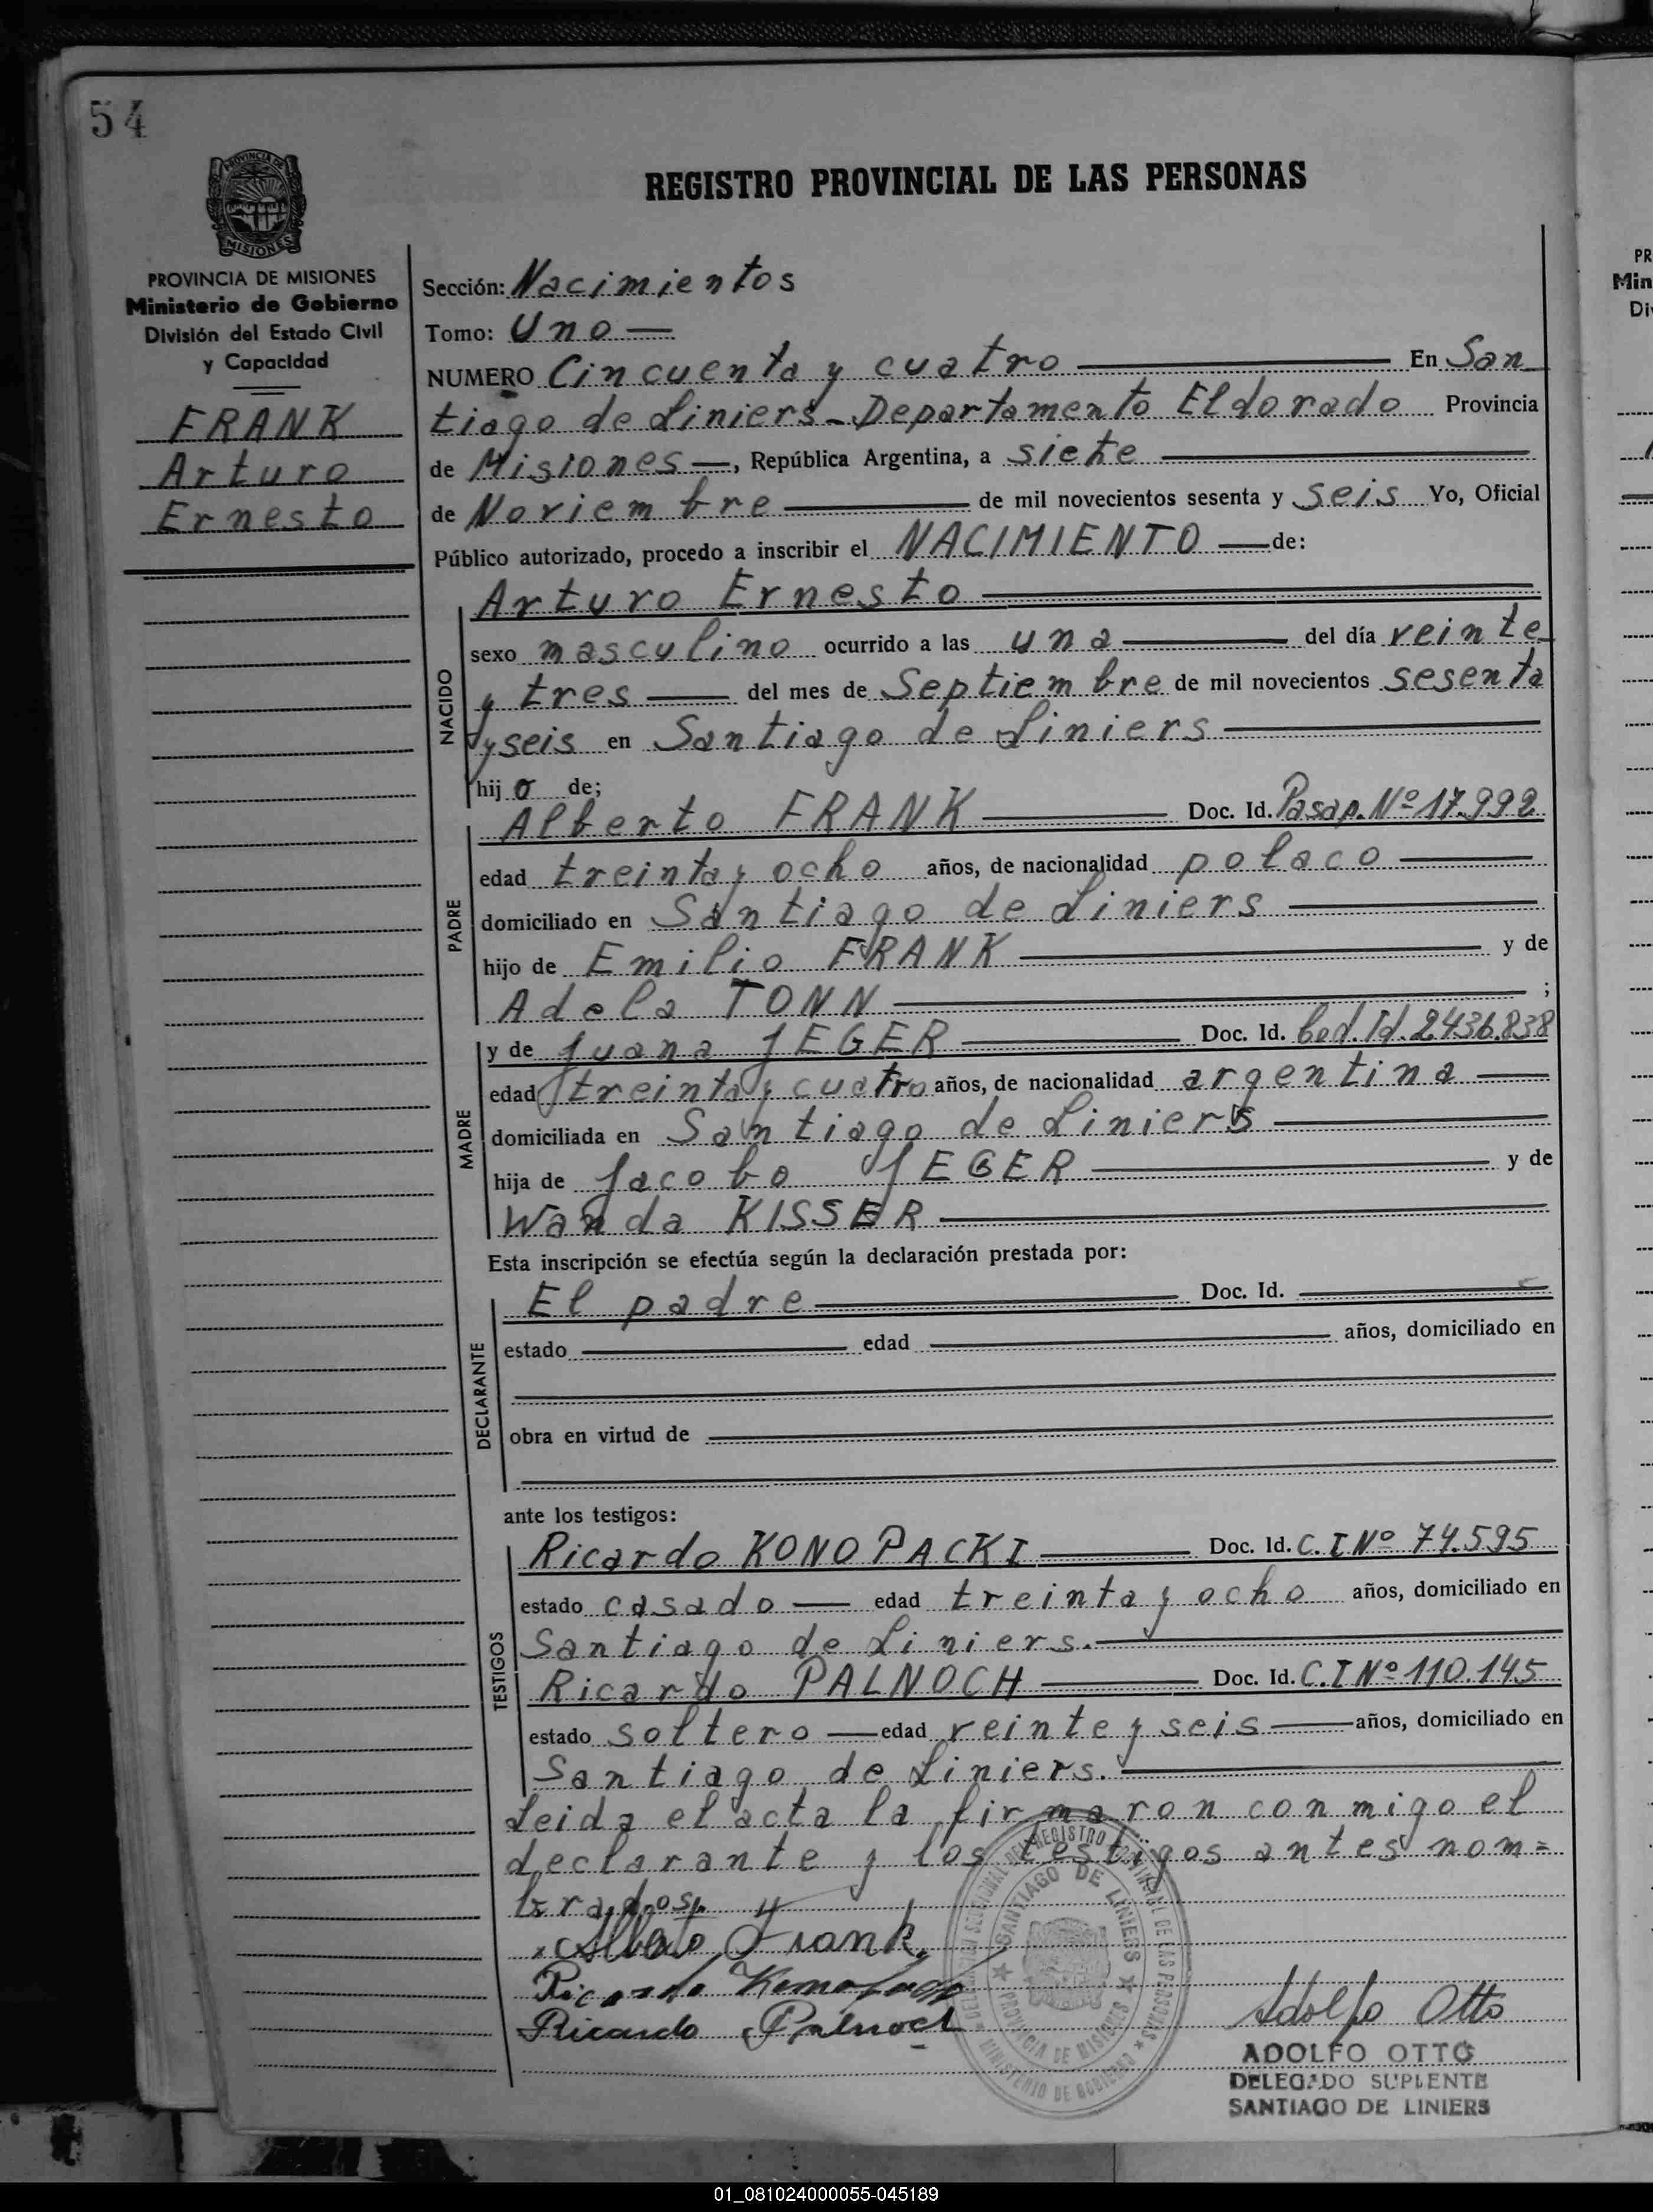 54
REGISTRO PROVINCIAL DE LAS PERSONAS
PROVINCIA DE
MISIONES
PROVINCIA DE MISIONES
Ministerio de Gobierno
División del Estado Civil
y Capacidad
FRANK
Arturo
Ernesto
Sección: Nacimientos
Tomo: Uno —
NUMERO Cincuenta y cuatro — En San
tiago de Liniers - Departamento Eldorado Provincia
de Misiones —, República Argentina, a siete —
de Noviembre — de mil novecientos sesenta y seis Yo, Oficial
Público autorizado, procedo a inscribir el NACIMIENTO — de:
NACIDO
Arturo Ernesto —
sexo masculino ocurrido a las una — del día veinte
y tres — del mes de Septiembre de mil novecientos sesenta
y seis en Santiago de Liniers —
hijo de;
PADRE
Alberto FRANK — Doc. Id. Pasap. Nº 17.992
edad treinta y ocho años, de nacionalidad polaco —
domiciliado en Santiago de Liniers —
hijo de Emilio FRANK — y de
Adela TONN — ;
MADRE
y de Juana JEGER — Doc. Id. Ced. Id. 2.436.838
edad treinta y cuatro años, de nacionalidad argentina —
domiciliada en Santiago de Liniers —
hija de Jacobo JEGER — y de
Wanda KISSER —
Esta inscripción se efectúa según la declaración prestada por:
DECLARANTE
El padre — Doc. Id. —
estado — edad — años, domiciliado en
obra en virtud de —
ante los testigos:
TESTIGOS
Ricardo KONOPACKI — Doc. Id. C. I Nº 74.595
estado casado — edad treinta y ocho años, domiciliado en
Santiago de Liniers. —
Ricardo PALNOCH — Doc. Id. C. I Nº 110.145
estado soltero — edad veinte y seis — años, domiciliado en
Santiago de Liniers. —
Leida el acta la firmaron conmigo el
declarante y los testigos antes nom=
brados
Alberto Frank
Ricardo Konopacki
Ricardo Palnoch
SANTIAGO DE LINIERS
PROVINCIA DE MISIONES
MINISTERIO DE GOBIERNO
Adolfo Otto
ADOLFO OTTO
DELEGADO SUPLENTE
SANTIAGO DE LINIERS
PR
Min
Di
01_081024000055-045189